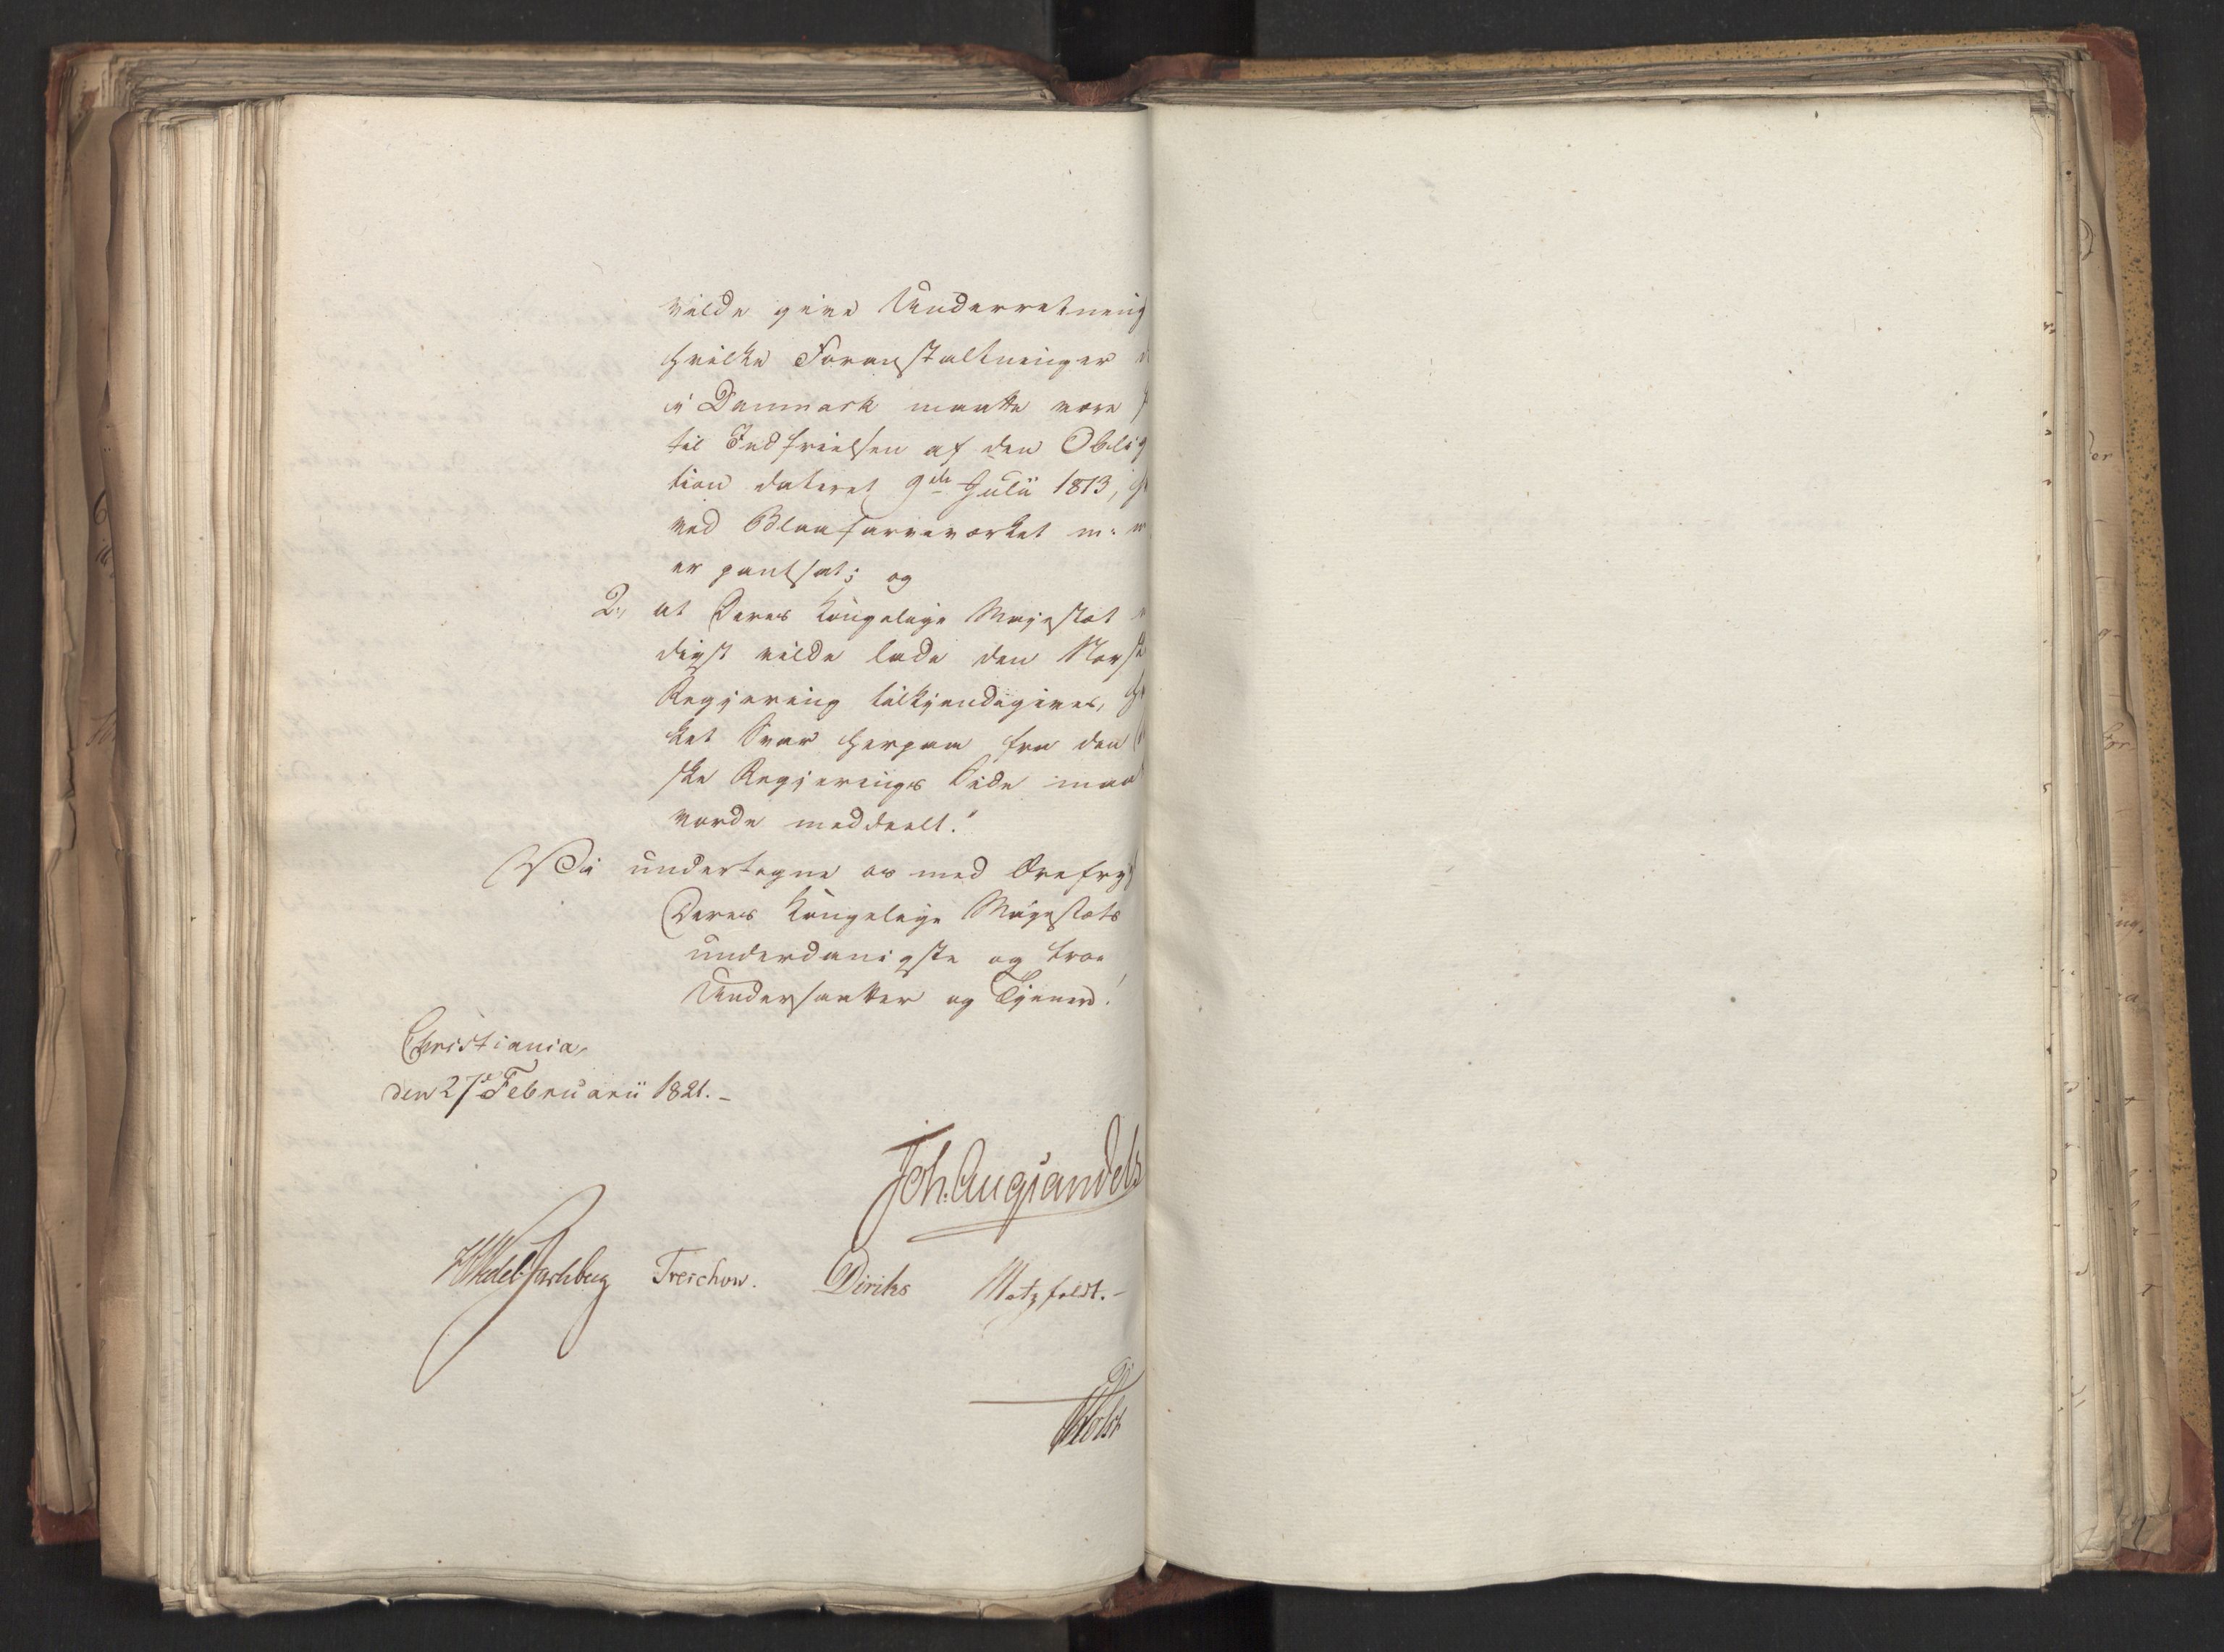 vilde give Underretning
hvilke Foranstaltninger
i Danmark maatte være
til Indfrielsen af den Oblig
tion dateret 9de Julii 1813,
ved Blaafarveværket m: 
er pantsat; og
2, at Deres Kongelige Majestæt
digst vilde lade den Norske
Regjering tilkjendegives, 
ket Svar herpaa fra den
ske Regjerings Side maa
vorde meddeelt."
Vi undertegne os med Ærefry
Deres Kongelige Majestæts
underdanigste og troe
Undersaatter og Tjenere!
Christiania,
den 27de Februarii 1821.-
Joh. Aug Sandels
HWedel Jarlsberg Treschow. Diriks Motzfeldt.-
Holst